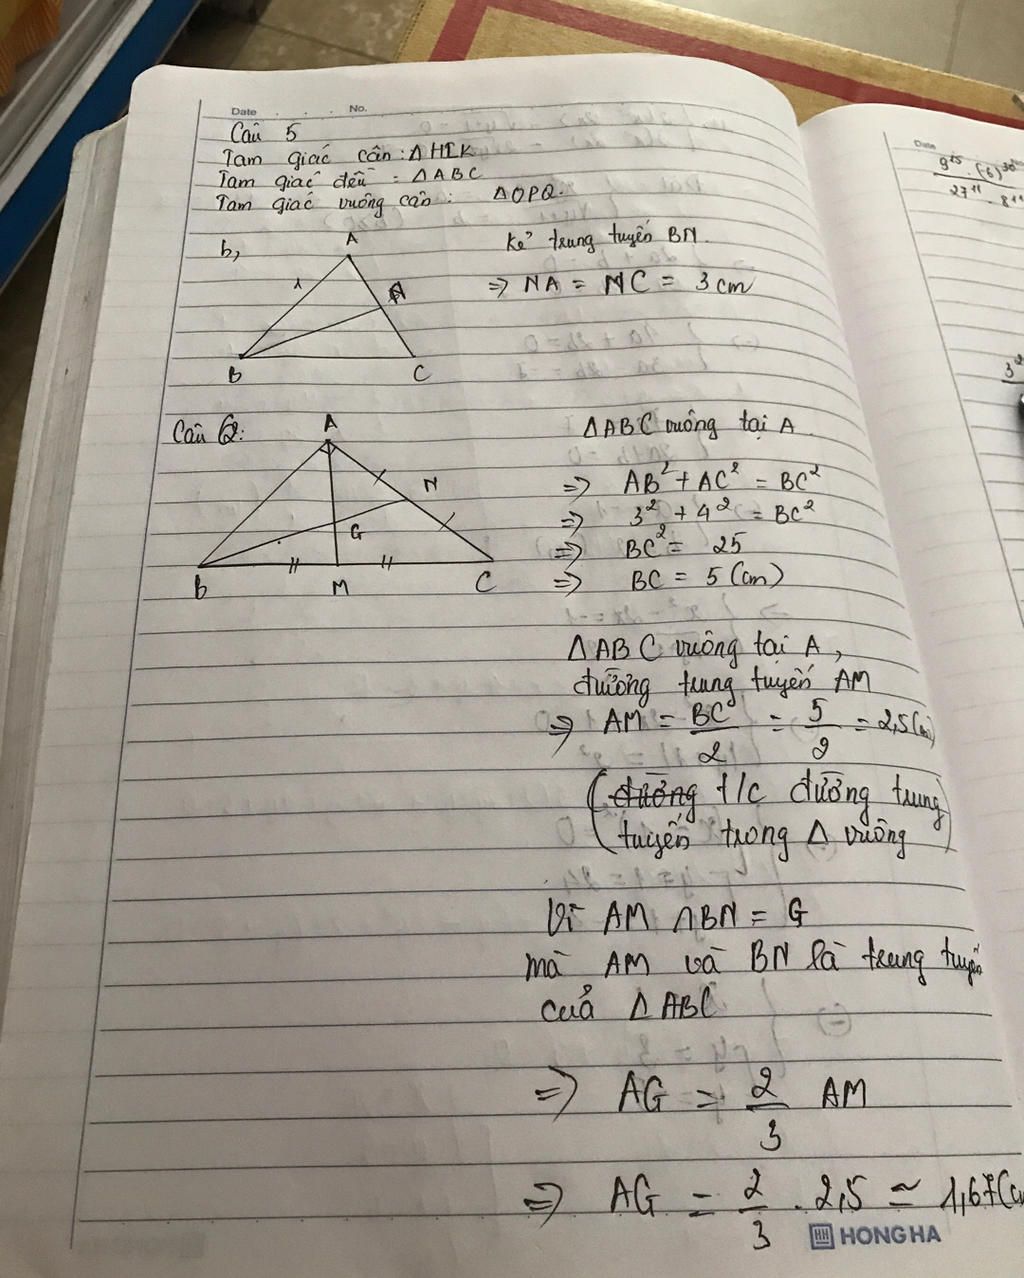 Date No.
Câu 5
Tam giác cân : Δ HIK
Tam giác đều = Δ ABC
Tam giác vuông cân : Δ OPQ.
b,
A
B
C
Kẻ trung tuyến BN.
=> NA = NC = 3 cm
Câu 6:
A
N
G
B
M
C
ΔABC vuông tại A.
=> AB² + AC² = BC²
=> 3² + 4² = BC²
=> BC² = 25
=> BC = 5 (cm)
Δ ABC vuông tại A,
đường trung tuyến AM
=> AM = BC/2 = 5/2 = 2,5 (cm)
(đường t/c đường trung
tuyến trong Δ vuông)
Vì AM ∩ BN = G
mà AM và BN là trung tuyến
của Δ ABC
=> AG = 2/3 AM
=> AG = 2/3 . 2,5 ≃ 1,67 (cm
HH HONG HA
Date
9¹⁵ . (6)³⁰
27¹¹ . 8¹¹
3²